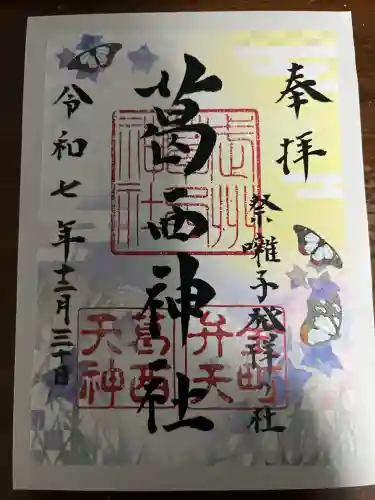 奉拝
祭囃子発祥の社
葛西神社
令和七年十二月三十日
葛西
天神
弁天